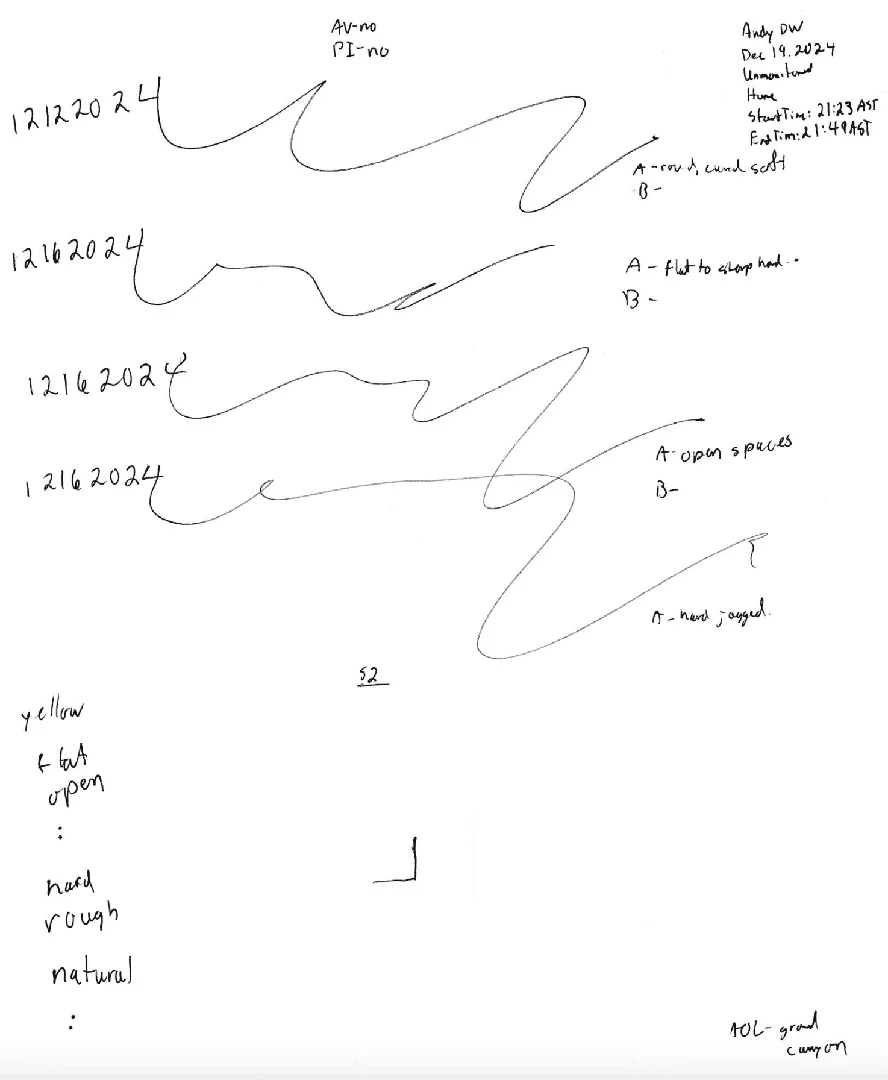 AV-no
PI-no
Andy DW
Dec 19, 2024
Unmonitored
Home
Start Time: 21:23 AST
End Time: 21:49 AST
12122024
A - round, curved soft
B -
12162024
A - flat to sharp hard..
B -
12162024
A - open spaces
B -
12162024
A - hard jagged.
S2
yellow
flat
open
:
hard
rough
natural
:
AOL - grand
canyon